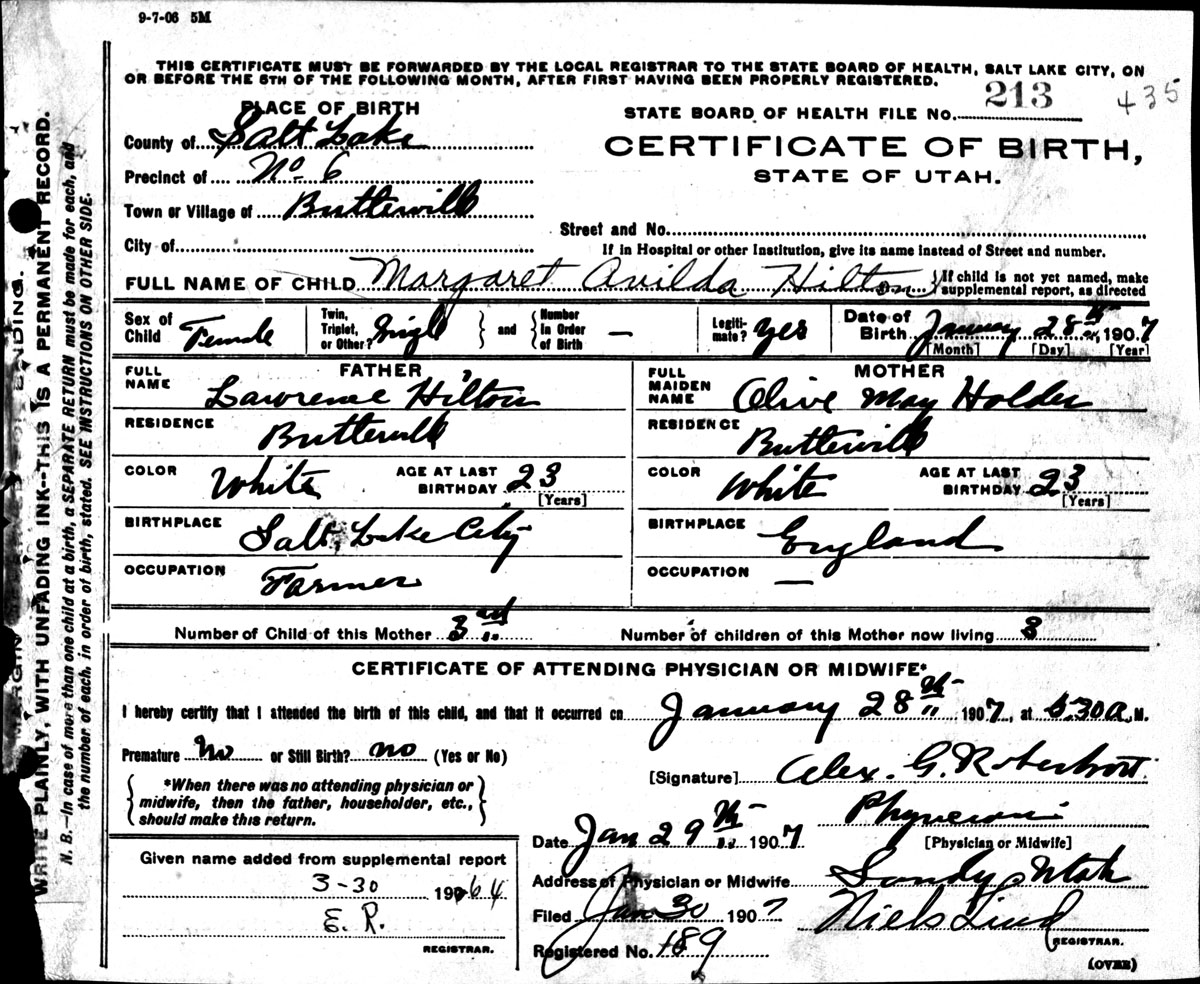 9-7-06 5M
THIS CERTIFICATE MUST BE FORWARDED BY THE LOCAL REGISTRAR TO THE STATE BOARD OF HEALTH, SALT LAKE CITY, ON
OR BEFORE THE 5TH OF THE FOLLOWING MONTH, AFTER FIRST HAVING BEEN PROPERLY REGISTERED.
PLACE OF BIRTH
County of Salt Lake
Precinct of No. 6
Town or Village of Butlerville
City of
STATE BOARD OF HEALTH FILE NO. 213
435
CERTIFICATE OF BIRTH,
STATE OF UTAH.
Street and No.
If in Hospital or other Institution, give its name instead of Street and number.
FULL NAME OF CHILD Margaret Avilda Hilton } If child is not yet named, make
supplemental report, as directed
Sex of Child Female
Twin, Triplet, or Other? Single } and { Number in Order of Birth —
Legitimate? Yes
Date of Birth January 28th, 1907
[Month] [Day] [Year]
FATHER
FULL NAME Lawrence Hilton
RESIDENCE Butlerville
COLOR White AGE AT LAST BIRTHDAY 23
[Years]
BIRTHPLACE Salt Lake City
OCCUPATION Farmer
MOTHER
FULL MAIDEN NAME Olive May Holder
RESIDENCE Butlerville
COLOR White AGE AT LAST BIRTHDAY 23
[Years]
BIRTHPLACE England
OCCUPATION —
Number of Child of this Mother 3rd
Number of children of this Mother now living 3
CERTIFICATE OF ATTENDING PHYSICIAN OR MIDWIFE*
I hereby certify that I attended the birth of this child, and that it occurred on January 28th 1907, at 5.30 A.M.
Premature No or Still Birth? no (Yes or No)
{ *When there was no attending physician or
midwife, then the father, householder, etc.,
should make this return. }
[Signature] Alex. G. Robertson
Physician
[Physician or Midwife]
Date Jan 29th 1907
Address of Physician or Midwife Sandy Utah
Filed Jan 30 1907 Niels Lind
REGISTRAR.
Registered No. 189
(OVER)
Given name added from supplemental report
3-30 1964
E. R.
REGISTRAR.
WRITE PLAINLY, WITH UNFADING INK--THIS IS A PERMANENT RECORD.
N. B.—In case of more than one child at a birth, a SEPARATE RETURN must be made for each, and
the number of each, in order of birth, stated. SEE INSTRUCTIONS ON OTHER SIDE.